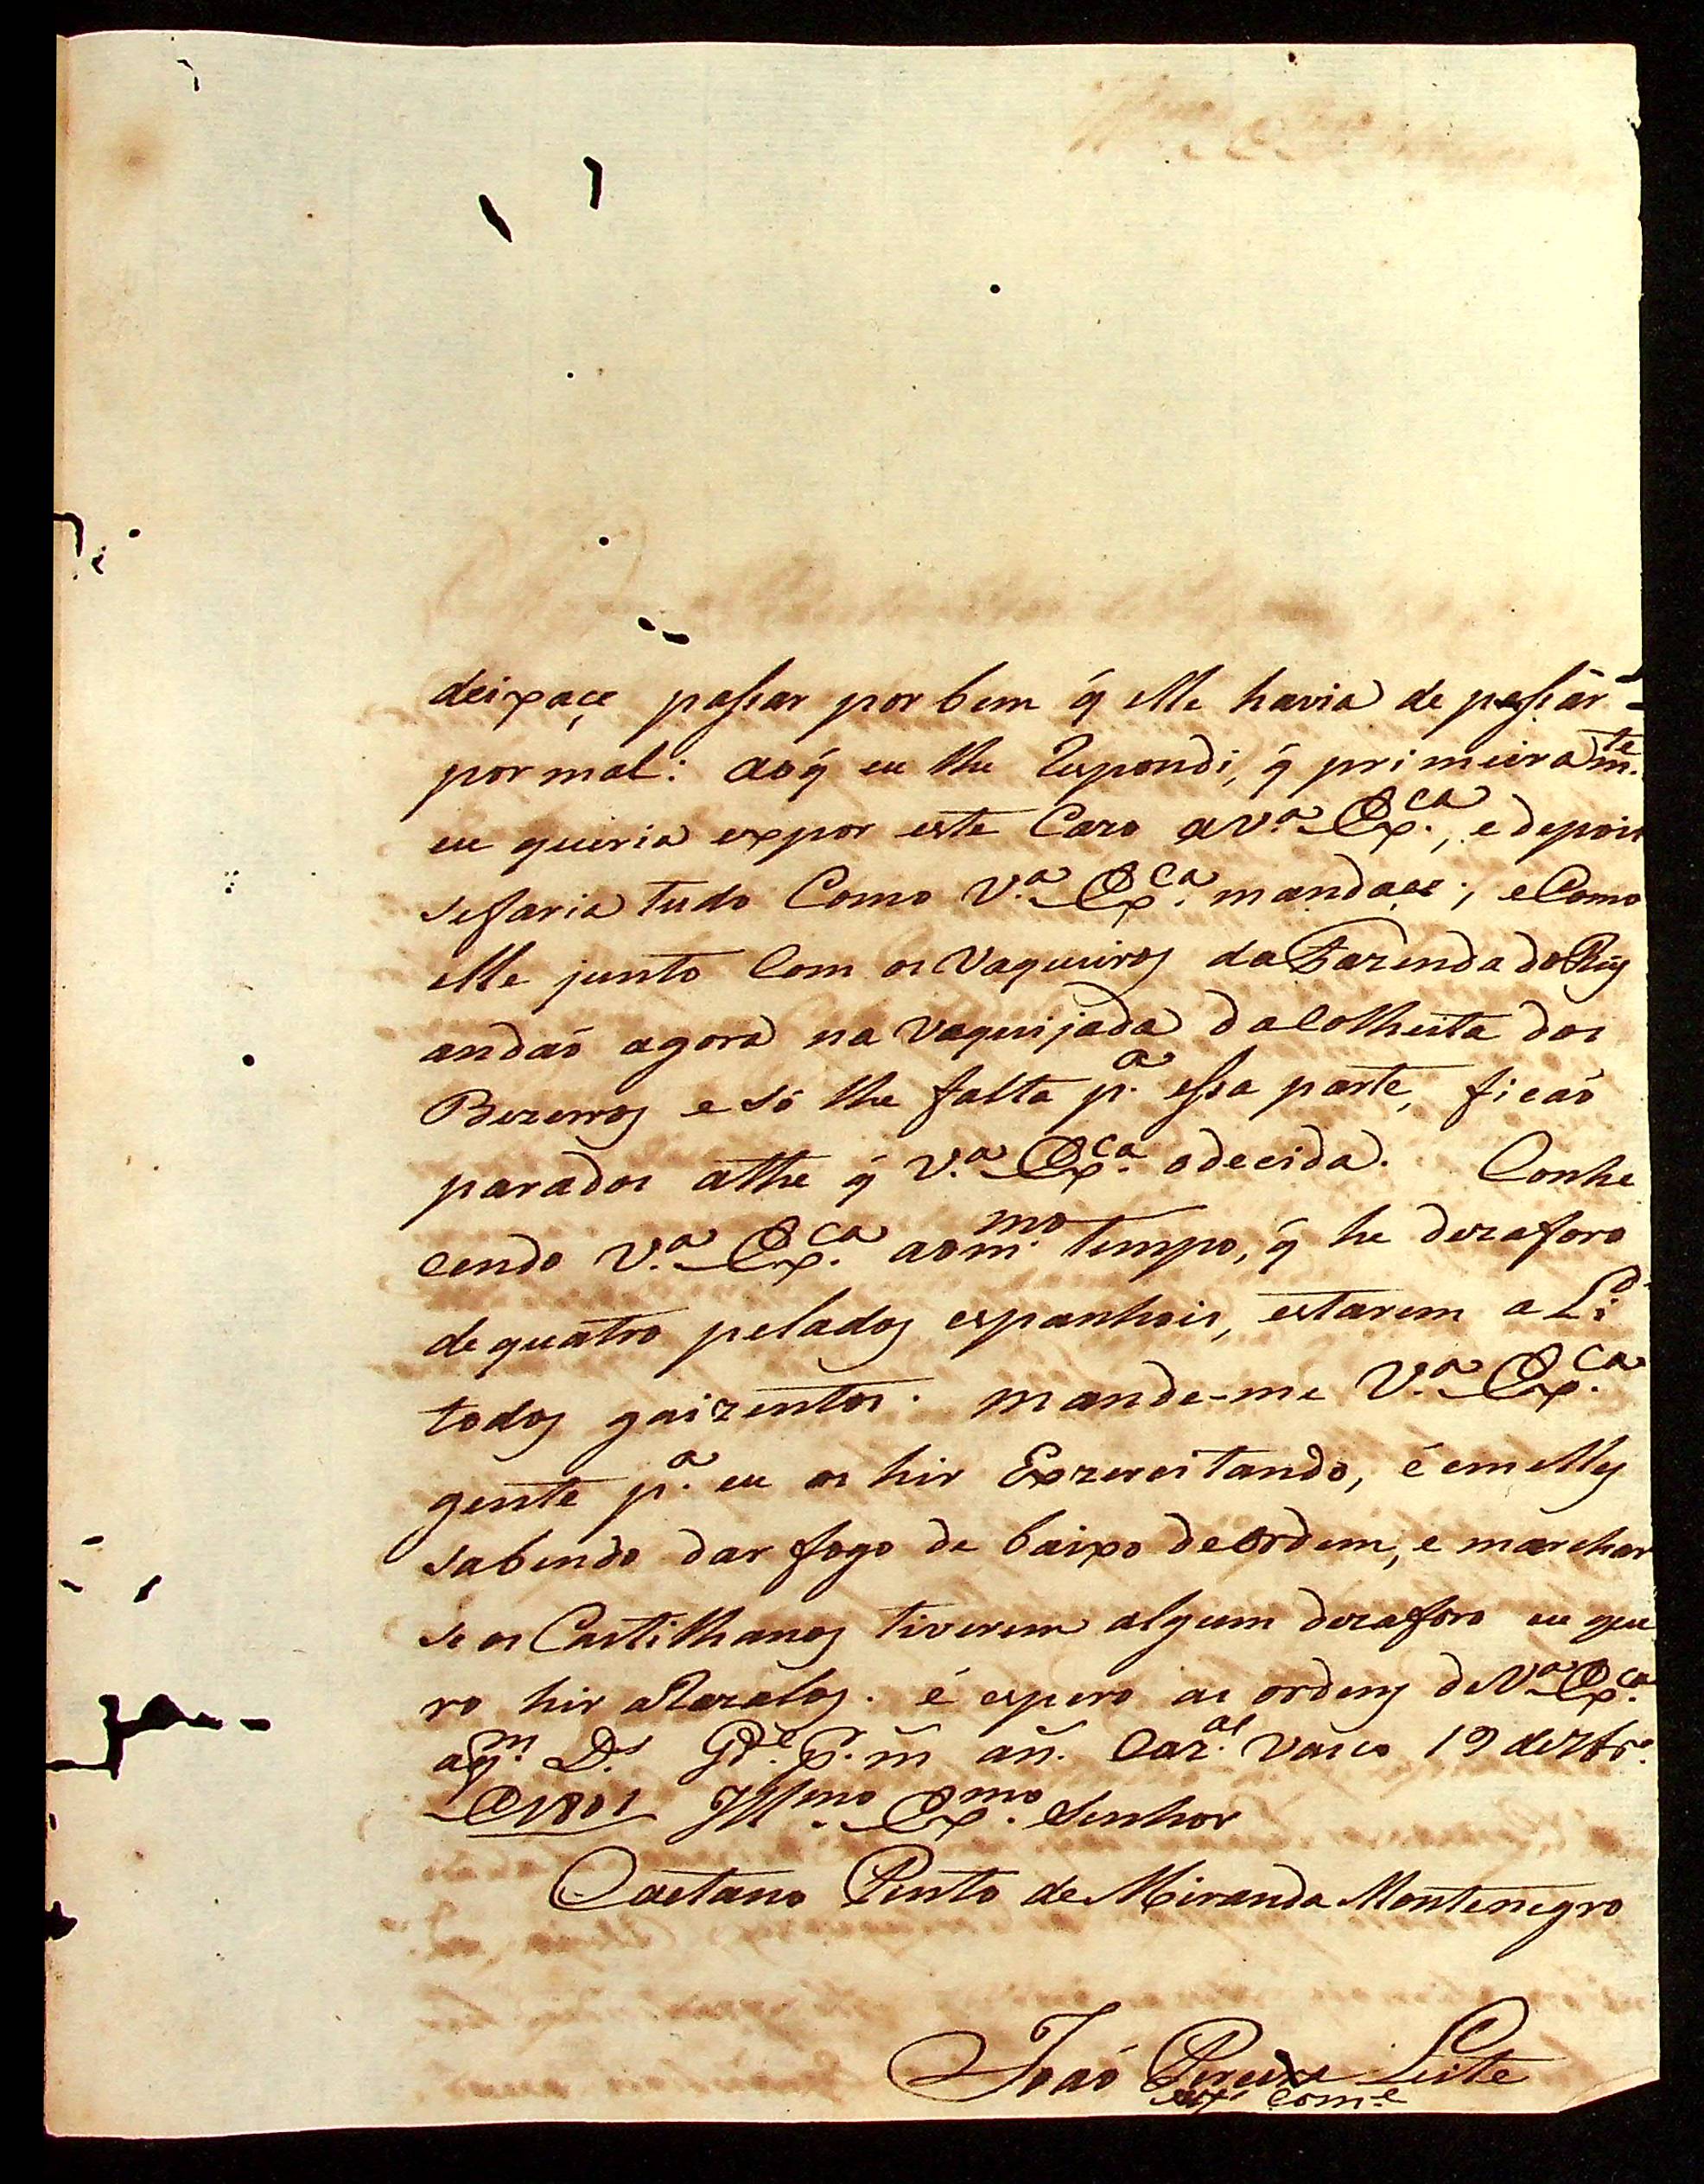 deixaçe passar por bem q̃ elle havia de passár
por mal: aoq̃ eu lhe Respondi, q̃ primeiram.te
eu queria expor este Cazo aV.a Ex.ca, edepois
sefaria tudo Como V.a Ex.ca mandaçe; eComo
elle junto Com os Vaqueiros da Fazenda do Rey
andaõ agora na Vaqueijada daColheita dos
Bezerros e só lhe falta p.a essa parte, ficaõ
parados athe q̃ V.a Ex.ca odecida. Conhe
cendo V.a Ex.ca aom.mo tempo, q̃ he dezaforo
dequatro pelados espanhois, estarem a Li
todos gaizentos. Mande-me V.a Ex.ca
gente p.a eu os hir Exzercitando, é em elles
sabendo dar fogo de baixo deordem, e marchar
se os Castilhanos tiverem algum dezaforo eu que
ro hir aRazalos. é espero as ordens deV.a Ex.ca
aq.m D.s G.de p.r m̃ an̄. Caz.al Vasco 19 de7br.o
de1801 Ill.mo Ex.mo Senhor
Caetano Pinto de Miranda Montenegro
Joaõ Pereira Leite
Com.e